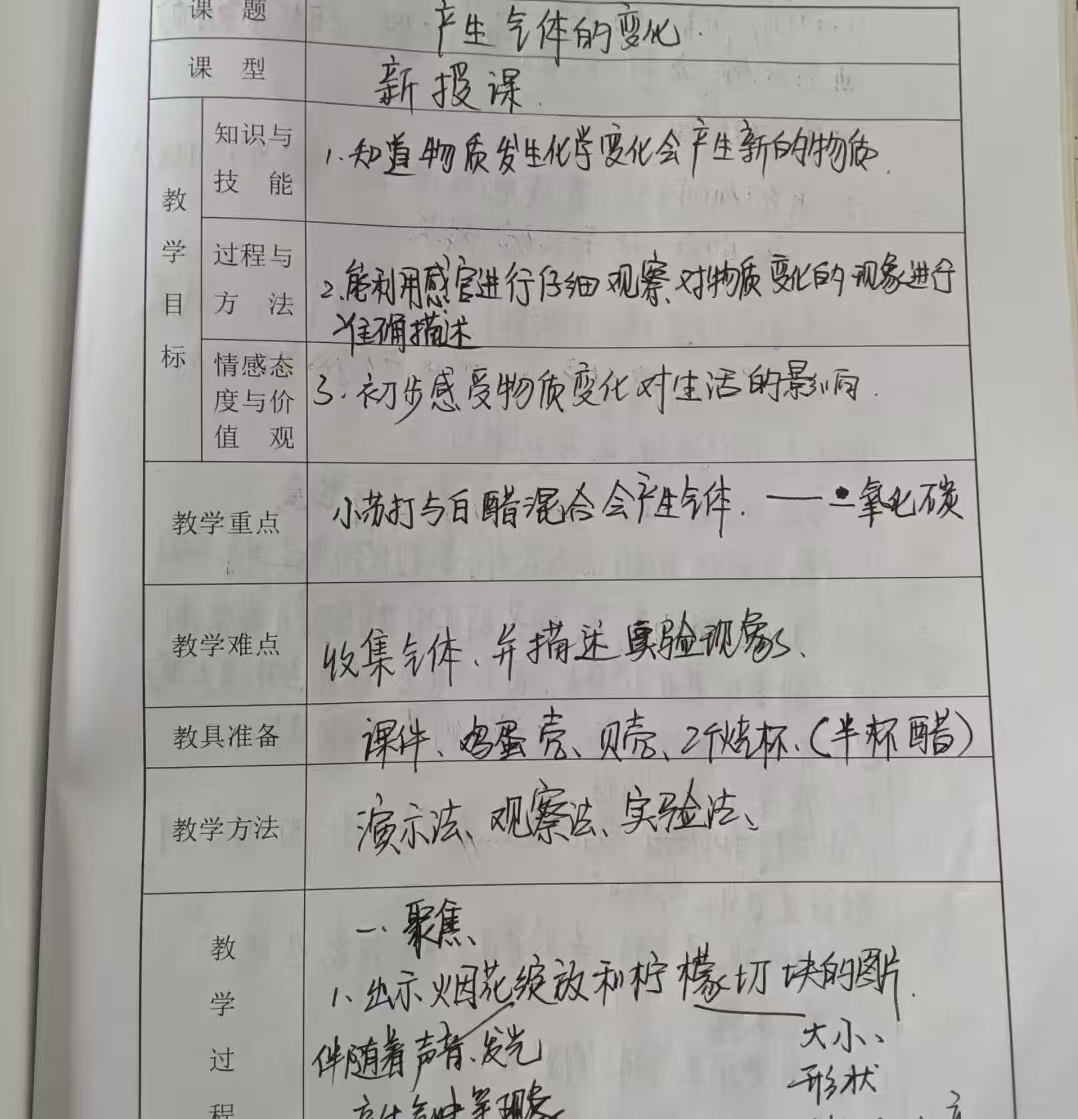 课 题 产生气体的变化.
课 型 新授课.
教学目标
知识与技能 1.知道物质发生化学变化会产生新的物质.
过程与方法 2.能利用感官进行仔细观察、对物质变化的现象进行
准确描述
情感态度与价值观 3.初步感受物质变化对生活的影响.
教学重点 小苏打与白醋混合会产生气体. ——•二氧化碳
教学难点 收集气体、并描述实验现象、
教具准备 课件、鸡蛋壳、贝壳、2个烧杯、(半杯醋)
教学方法 演示法、观察法、实验法、
教学过程
一.聚焦、
1、出示烟花绽放和柠檬切块的图片.
伴随着声音、发光 大小、
形状